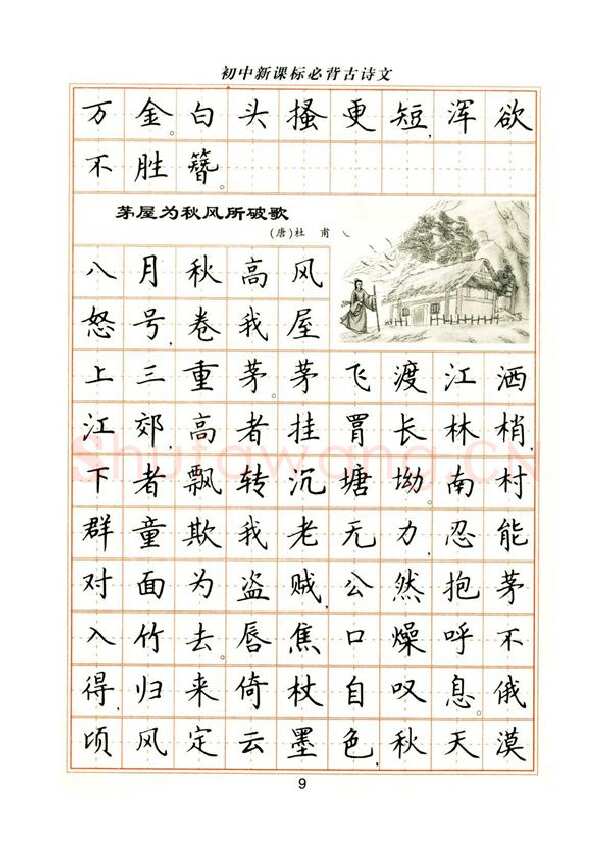 初中新课标必背古诗文
万金。白头搔更短,浑欲
不胜簪。
茅屋为秋风所破歌
(唐)杜 甫
八月秋高风
怒号,卷我屋
上三重茅。茅飞渡江洒
江郊,高者挂罥长林梢,
下者飘转沉塘坳。南村
群童欺我老无力,忍能
对面为盗贼,公然抱茅
入竹去。唇焦口燥呼不
得,归来倚杖自叹息。俄
顷风定云墨色,秋天漠
Shufawang.CN
9